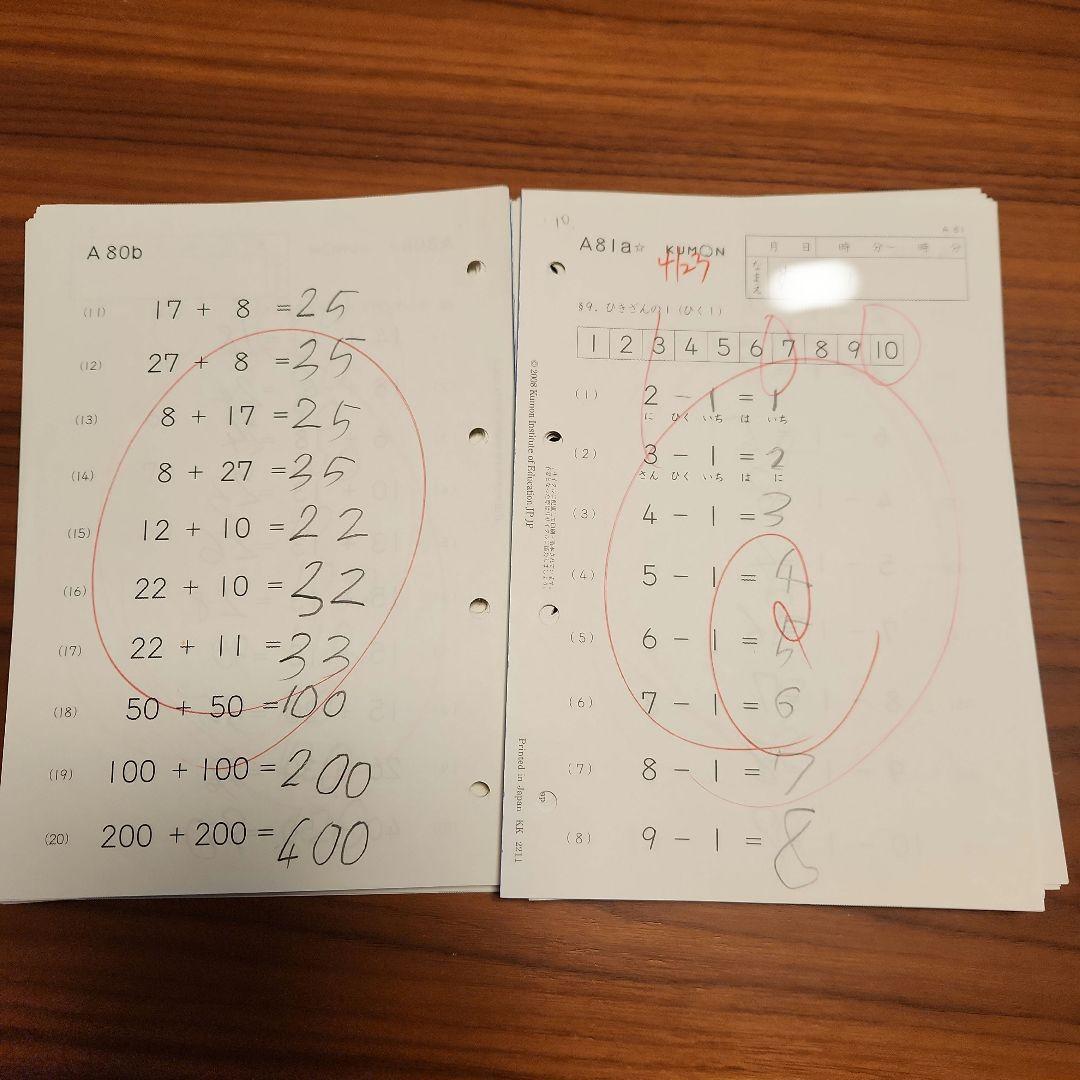 A80b
(11) 17 + 8 = 25
(12) 27 + 8 = 35
(13) 8 + 17 = 25
(14) 8 + 27 = 35
(15) 12 + 10 = 22
(16) 22 + 10 = 32
(17) 22 + 11 = 33
(18) 50 + 50 = 100
(19) 100 + 100 = 200
(20) 200 + 200 = 400
10
A 81
A81a☆ KUMON
4/23
月 日 時 分〜 時 分
なまえ
§9. ひきざんの1(ひく1)
1 2 3 4 5 6 7 8 9 10
(1) 2 − 1 = 1
に ひく いち は いち
(2) 3 − 1 = 2
さん ひく いち は に
(3) 4 − 1 = 3
(4) 5 − 1 = 4
(5) 6 − 1 = 5
(6) 7 − 1 = 6
(7) 8 − 1 = 7
(8) 9 − 1 = 8
© 2008 Kumon Institute of Education JP JP
Printed in Japan KK 2211